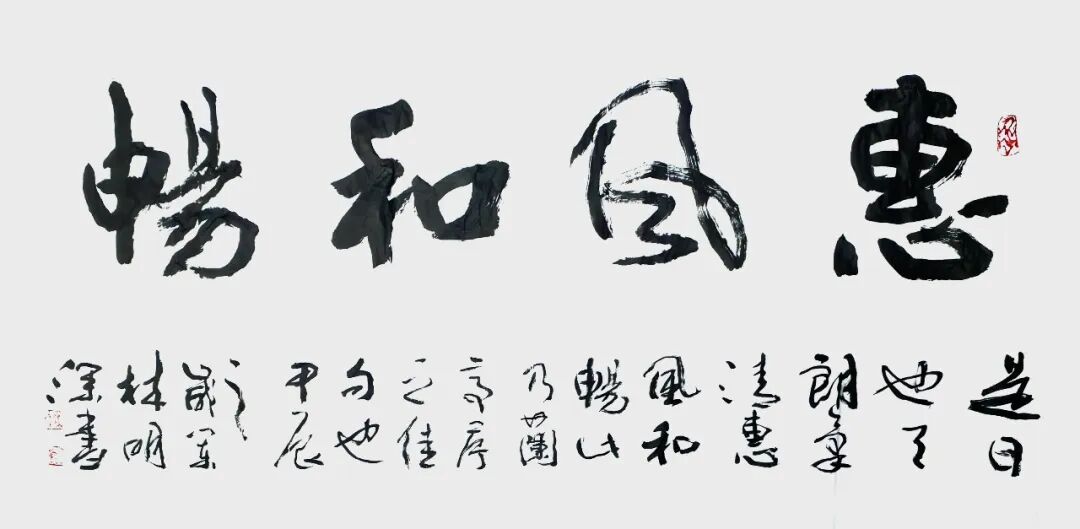 惠風和暢
是日
也天
朗氣
清惠
風和
暢此
乃蘭
亭序
之佳
句也
甲辰
之
歲
林明
深書